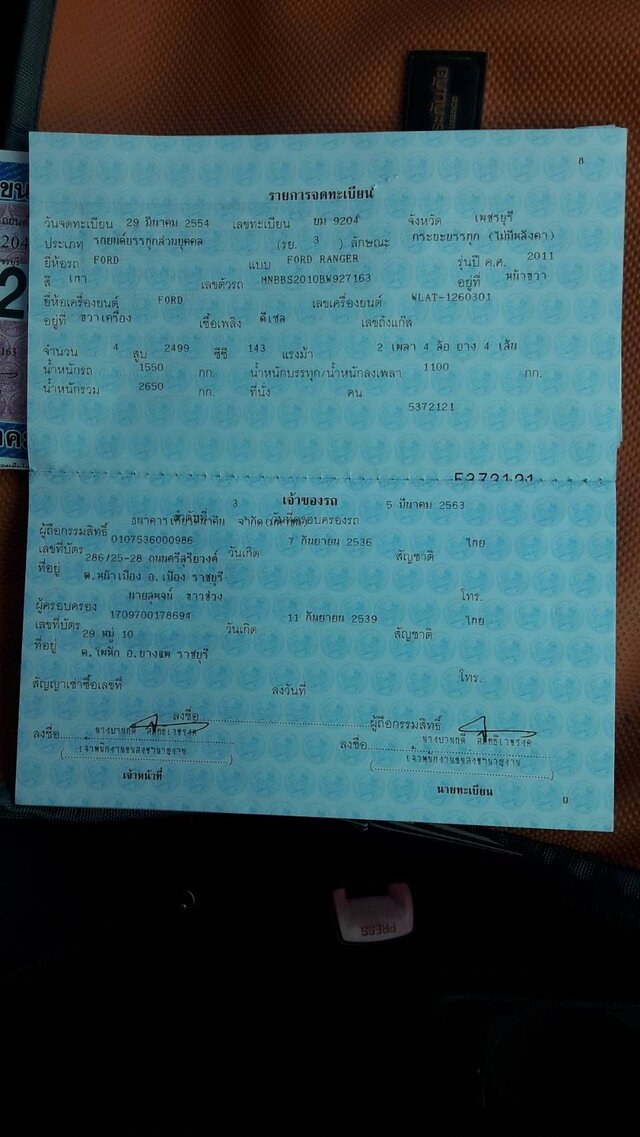 8
รายการจดทะเบียน
วันจดทะเบียน 29 มีนาคม 2554 เลขทะเบียน ยม 9204 จังหวัด เพชรบุรี
ประเภท รถยนต์บรรทุกส่วนบุคคล (รย. 3 ) ลักษณะ กระบะบรรทุก (ไม่มีหลังคา)
ยี่ห้อรถ FORD แบบ FORD RANGER รุ่นปี ค.ศ. 2011
สี เทา เลขตัวรถ MNBBS2010BW927163 อยู่ที่ หน้าขวา
ยี่ห้อเครื่องยนต์ FORD เลขเครื่องยนต์ WLAT-1260301
อยู่ที่ ขวาเครื่อง เชื้อเพลิง ดีเซล เลขถังแก๊ส
จำนวน 4 สูบ 2499 ซีซี 143 แรงม้า 2 เพลา 4 ล้อ ยาง 4 เส้น
น้ำหนักรถ 1550 กก. น้ำหนักบรรทุก/น้ำหนักลงเพลา 1100 กก.
น้ำหนักรวม 2650 กก. ที่นั่ง คน
5372121
5372121
เจ้าของรถ
3 วันที่ครอบครองรถ 5 มีนาคม 2563
ผู้ถือกรรมสิทธิ์ ธนาคาร จำกัด
เลขที่บัตร 0107536000986 วันเกิด 7 กันยายน 2536 สัญชาติ ไทย
ที่อยู่ 286/25-28 ถนนศรีสุริยวงศ์
ต.หน้าเมือง อ.เมือง ราชบุรี
โทร.
ผู้ครอบครอง นายสุพจน์ ขาวช่วง
เลขที่บัตร 1709700178694 วันเกิด 11 กันยายน 2539 สัญชาติ ไทย
ที่อยู่ 29 หมู่ 10
ต.โพหัก อ.บางแพ ราชบุรี
โทร.
สัญญาเช่าซื้อเลขที่ ลงวันที่
ลงชื่อ ผู้ถือกรรมสิทธิ์
ลงชื่อ ลงชื่อ
(เจ้าพนักงานขนส่งชำนาญงาน) (เจ้าพนักงานขนส่งชำนาญงาน)
เจ้าหน้าที่ นายทะเบียน
PRESS